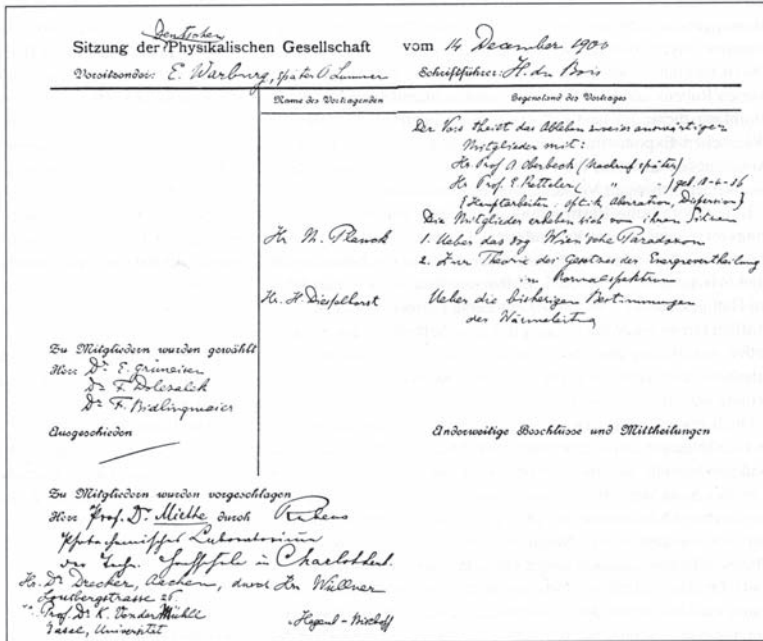 Sitzung der Deutschen Physikalischen Gesellschaft vom 14 December 1900
Vorsitzender: E. Warburg, später O Lummer Schriftführer: H. du Bois
Name des Vortragenden Gegenstand des Vortrages
Der Vors theilt das Ableben zweier auswärtiger
Mitglieder mit:
Hr. Prof A Oberbeck (Nachruf später)
Hr Prof. E. Ketteler ( " - )
(Hauptarbeiten, optik, Aberration, Dispersion)
Die Mitglieder erheben sich von ihren Sitzen
Hr M. Planck 1. Ueber das sog Wien'sche Paradoxon
2. Zur Theorie des Gesetzes der Energievertheilung
im Normalspektrum
Hr. H. Diesselhorst Ueber die bisherigen Bestimmungen
der Wärmeleitung
Zu Mitgliedern wurden gewählt
Herr Dr. E. Grüneisen
Dr F. Dolezalek
Dr F. Bidlingmaier
Ausgeschieden Anderweitige Beschlüsse und Mittheilungen
Zu Mitgliedern wurden vorgeschlagen
Herr Prof. Dr. Miethe durch Rubens
Photochemisches Laboratorium
der Techn. Hochschule in Charlottenb.
Hr. Dr Drecker, Aachen, durch Hrn Wüllner
Lousbergstrasse 26.
" Prof. Dr K. VonderMühll
Basel, Universität Hagenb-Bischoff